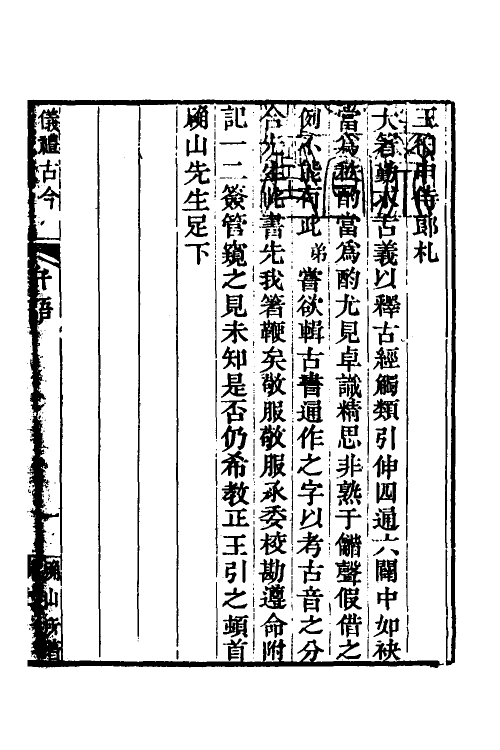 王伯申侍郎札
大箸勤求古義以釋古經觸類引伸四通六闢中如袂
當爲秩酌當爲酌尤見卓識精思非熟于龤聲假借之
例不能有此弟嘗欲輯古書通作之字以考古音之分
合先生此書先我箸鞭矣敬服敬服承委校勘遵命附
記一二簽管窺之見未知是否仍希教正王引之頓首
硯山先生足下
儀禮古今
一
硯山所